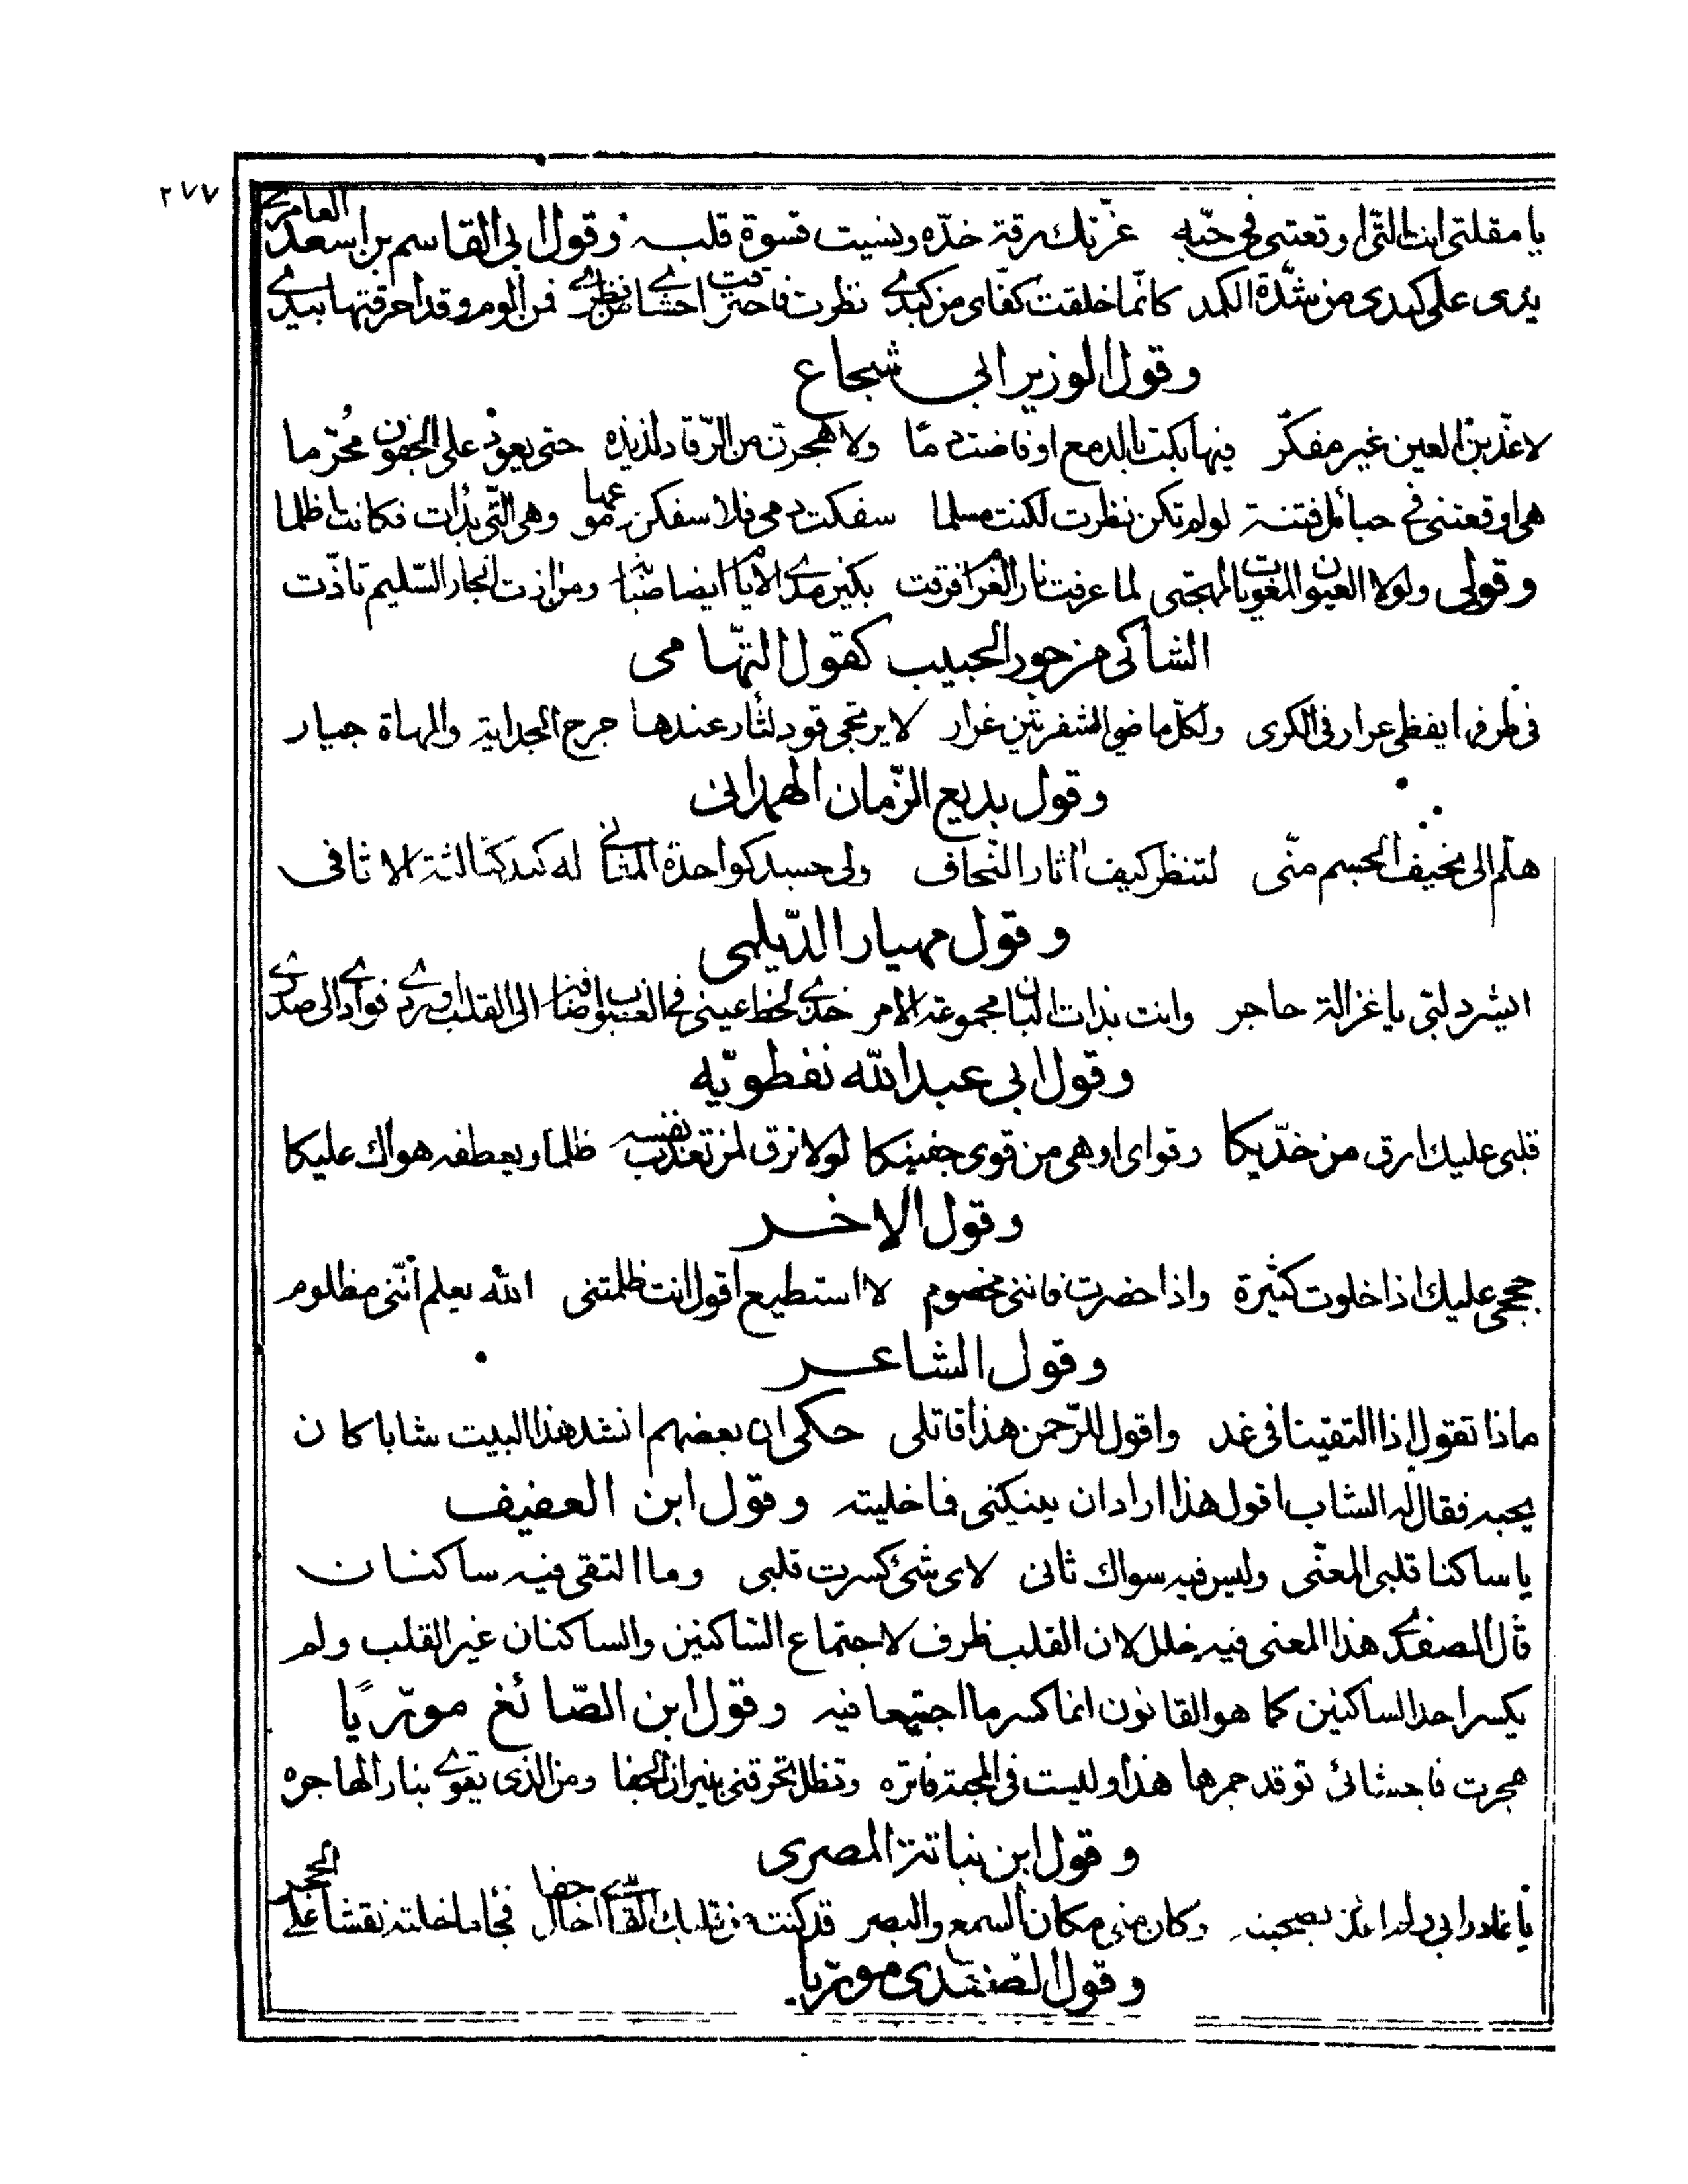 ٢٧٧
يا مقلتى انت التى اوقعتنى فى حبه غرتك رقة خده ونسيت قسوة قلبه وقول ابى القاسم بن اسعد العامرى
يدى على كبدى من شدة الكمد كانما خلقت كفاى من كبدى نظرت فاحترقت احشاى من نظرى فمن الوم وقد احرقتها بيدى
وقول الوزير ابى شجاع
لاعذبن العين غير مفكر فيها بكت بالدمع او فاضت دما ولاهجرن من الرقاد لذيذه حتى يعود على الجفون محرما
هى اوقعتنى فى حبائل فتنة لو لم تكن نظرت لكنت مسلما سفكت دمى فلاسفكن دموعها وهى التى بدات فكانت اظلما
وقولى ولولا العيون المغويات لمهجتى لما عرفت نار الغرام
الشاكى من جور الحبيب كقول التهامى
فى طرفها يفظى عرار فى الكرى ولكل ماضى الشفرتين غرار لا يرتجى قود لثار عندها جرح الجداية والمهاة جبار
وقول بديع الزمان الهمدانى
هلم الى نحيف الجسم منى لتنظر كيف اثار النحاف ولى جسد كواحدة المثانى له كبد كثالثة الاثافى
وقول مهيار الديلمى
ايشرد لبى يا غزالة حاجر وانت بذات البان مجموعة الامر خذى لحظ عينى فى الغصوب اضافة الى القلب او ردى فوادى الى صدرى
وقول ابى عبد الله نفطويه
قلبى عليك ارق من خديكا وقواى اوهى من قوى جفنيكا لولا ترق لمن تعذب نفسه ظلما ويعطفه هواك عليكا
وقول الاخر
حججى عليك اذا خلوت كثيرة واذا حضرت فاننى مخصوم لا استطيع اقول انت ظلمتنى الله يعلم اننى مظلوم
وقول الشاعر
ماذا تقول اذا التقينا فى غد واقول للرحمن هذا قاتلى حكى ان بعضهم انشد هذا البيت شابا كان
يحبه فقال له الشاب اقول هذا اراد ان ينيكنى فما خليته وقول ابن العفيف
يا ساكنا قلبى المعنى وليس فيه سواك ثانى لاى شئ كسرت قلبى وما التقى فيه ساكنان
قال الصفدى هذا المعنى فيه خلل لان القلب ظرف لاجتماع الساكنين والساكنان غير القلب ولم
يكسر احد الساكنين كما هو القانون انما كسر ما اجتمعا فيه وقول ابن الصائغ موريا
هجرت فاحشائى توقد جمرها هذا وليست فى المحبة فاتره وتظل تحرقنى بنيران الجفا ومن الذى يقوى بنار الهاجره
وقول ابن نباتة المصرى
يا غادرا بى ولم اغدر بصحبته وكان منى مكان السمع والبصر قد كنت من قلبك القاسى اخال جفا فجاء ما خلته نقشا على الحجر
وقول الصفدى موريا